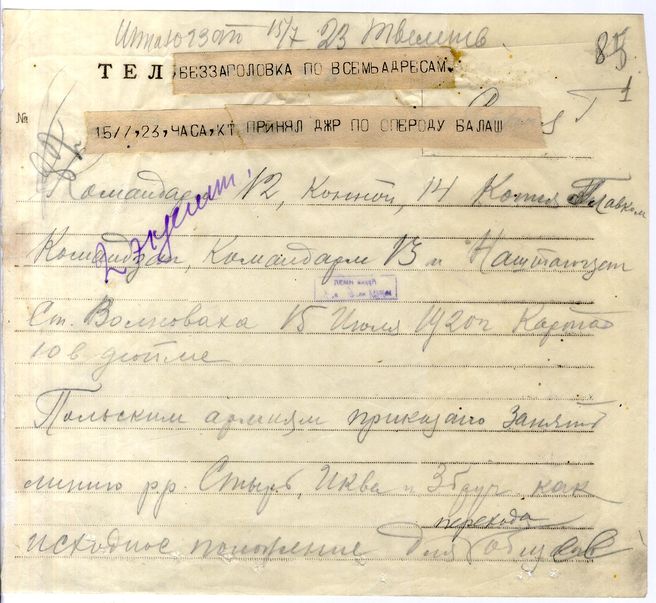 15/7 23
85
ТЕЛ БЕЗЗАГОЛОВКА ПО ВСЕМЬАДРЕСАМ.
1
№
15/7,23,ЧАСА,КТ ПРИНЯЛ ДЖР ПО СПЕРОДУ БАЛАШ
Командарм 2, Конной, 14 Копия Главком
Командзап, Командарм 13 и Наштаюгзап
Ст. Волноваха 15 Июля 1920г Карта
10 в дюйме
Польским армиям приказано занять
линию рр. Стырь, Иква и Збруч как
перехода
исходное положение для